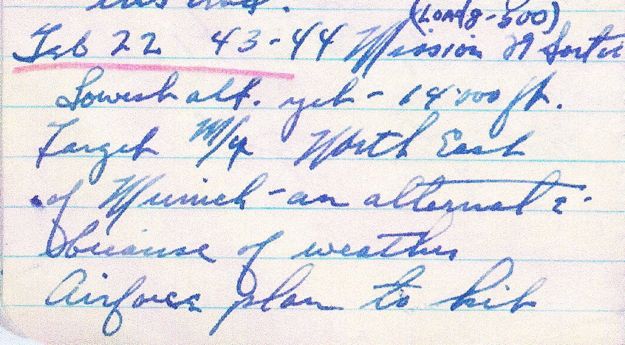 (LOAD 8-500)
Feb 22 43-44 Mission 29 Sortie
Lowest alt. yet - 14000 ft.
Target M/y North East
of Munich - an alternate
because of weather
Airforce plan to hit